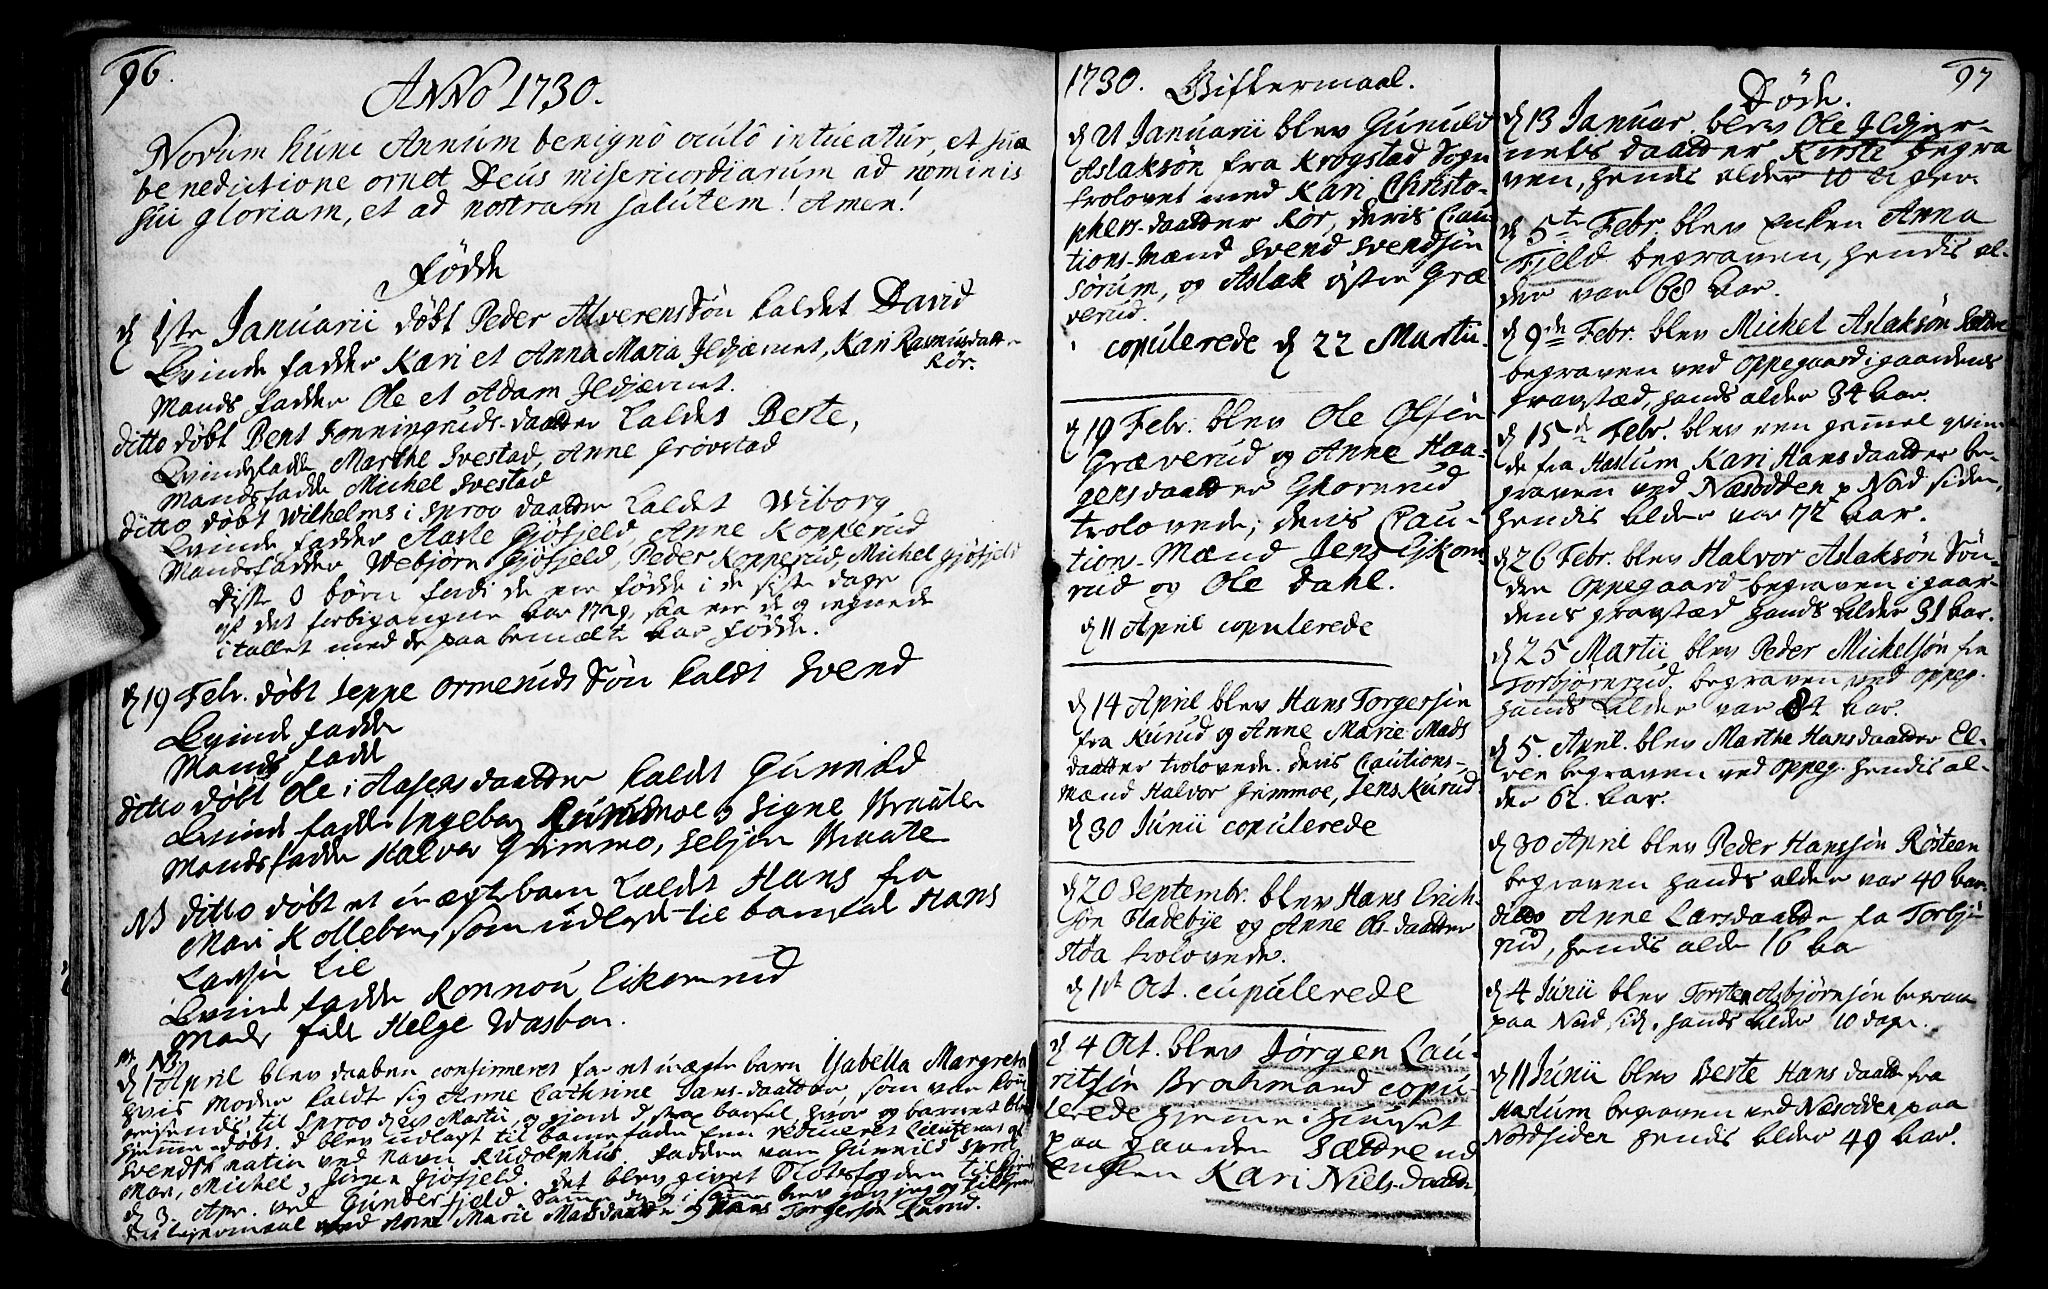 96.
Anno 1730.
Novum hunc Annum benignô oculô intueatur, et sua
benedictione ornet Deus misericordiarum ad nominis
sui gloriam, et ad nostram salutem! Amen!
Fødde
d 1ste Januarii døbt Peder Alverens Søn kaldet David
Qvinde fadder Kari et Anna Maria Ildjærnet, Kari Rasmusdatter
Rør.
Mands fadder Ole et Adam Ildjærnet.
ditto døbt Bent Sonningruds-daatter kaldet Berte,
Qvindefadder Marthe Svestad, Anne Grøvstad
Mandsfadder Michel Svestad
ditto døbt Wilhelms i Sproe daatter kaldet Wiborg
Qvinde fadder Aaste Gjøfjeld, Anne Kopperud
Mandsfadder Webjørn Gjøfjeld, Peder Kopperud, Michel Gjøfjeld
Disse 3 børn fordi de ere fødde i de siste dage
af det forbigangne Aar 1729, saa ere de og regnede
i tallet med de paa bemelte Aar fødde.
d 19 Febr. døbt Jeppe Ormeruds Søn kaldt Svend
Qvinde fadder
Mands fadd
ditto døbt Ole i Aasens daatter kaldt Gunnild
Qvinde fadder Ingebor Grimmoe, Signe Braaten
Mandsfadder Halvor Grimmo, Sebjør Braate
NB ditto døbt et uægte barn kaldet Hans fra
Mari Kollebon, som udlagde til barnefar Hans
Larsøn til
Qvind fadder Ronnou Eikornrud
Mads fadd Helge Wasbon.
NB.
d 1 April blev daaben confirmeret for et uægte barn Isabella Margreta
hvis Moder kaldt sig Anne Cathrine Jans-daatter, som var kom
reisende til Sproe Martii og giorde barsel hvor og barnet blev
hjemmedøbt. d blev udlagt til barnefader Een reduceret Lieutenant af
Svendsk natin ved navn Rudolphus. fadder vare Gunnild Sproe
Mari, Michel, Jørgen Gjøfjeld. det blev givet Slotsfogden tilkjende
d 3. Apr. ved Gunderfjeld. Samme dag
Leyermaal med Anne Marie Madsdaatter og Hans Torgersøn Kurud.
1730. Giftermaal.
d 21 Januarii blev Gunuld
Aslaksøn fra Krogstad Sogn
trolovet med Kari Christo-
phers-daatter Rør, deris Cau-
tions-Mænd Svend Svendsøn
Sørum, og Aslak østre Græ
verud.
copulerede d 22 Martii.
d 19 Febr. blev Ole Olsøn
Græverud og Anne Haa-
gensdaatter Ghornrud
trolovede, deris Cau-
tion-Mænd Jens Ejkorn-
rud og Ole Dahl.
d 11 April copulerede
d 14 April blev Hans Torgersøn
fra Kurud og Anne Marie Mads
daatter trolovede. deris Cautions-
Mænd Halvor Grimmoe, Jens Kurud
d 30 Junii copulerede
d 20 Septembr. blev Hans Erich-
søn Fladebye og Anne Ols-daatter
Aaa trolovede.
d 1st Oct. cupulerede
d 4 Oct. blev Jørgen Lau-
ritsøn Brahmand copu-
lerede hjemme i huuset
paa gaarden Sætdre ud
enken Kari Niels-daatter
97
Døde.
d 13 Januar. blev Ole Ildjer-
nets daatter Kirste begra
ven, hendis alder 10 uger.
d 5te Febr. blev Enken Anna
Fjeld begraven, hendis al-
der var 68 Aar.
d 9de Febr. blev Michel Aslaksøn Sætdre
begraven ved Oppegaard i gaardens
gravstæd, hands alder 34 Aar.
d 15de Febr. blev een gamel qvin-
de fra Haslum Kari Hansdaatter be-
graven ved Næsodden p Nord siden,
hendis Alder var 72 Aar.
d 26 Febr. blev Halvor Aslaksøn Søn-
dre Oppegaard begraven i gaar-
dens gravstæd hands Alder 31 Aar.
d 25 Martii blev Peder Michelsøn fra
Torbjørnrud begraven ved Oppeg.
hands Alder var 84 Aar.
d 5. April. blev Marthe Hansdaatter El-
ven begraven ved Oppeg. hendis al-
der 62. Aar.
d 30 April blev Peder Hanssøn Røsteen
begraven hands alder var 40 Aar.
ditto Anne Larsdaatter fra Torbjø-
rud, hendis alder 16 Aar
d 4 Junii blev Torsten Asbjørnsøn begra
paa Nord sid. hands Alder 10 dage.
d 11 Junii blev Berte Hansdaatter fra
Haslum begraven ved Næsodden paa
Nordsiden hendis Alder 49 Aar.